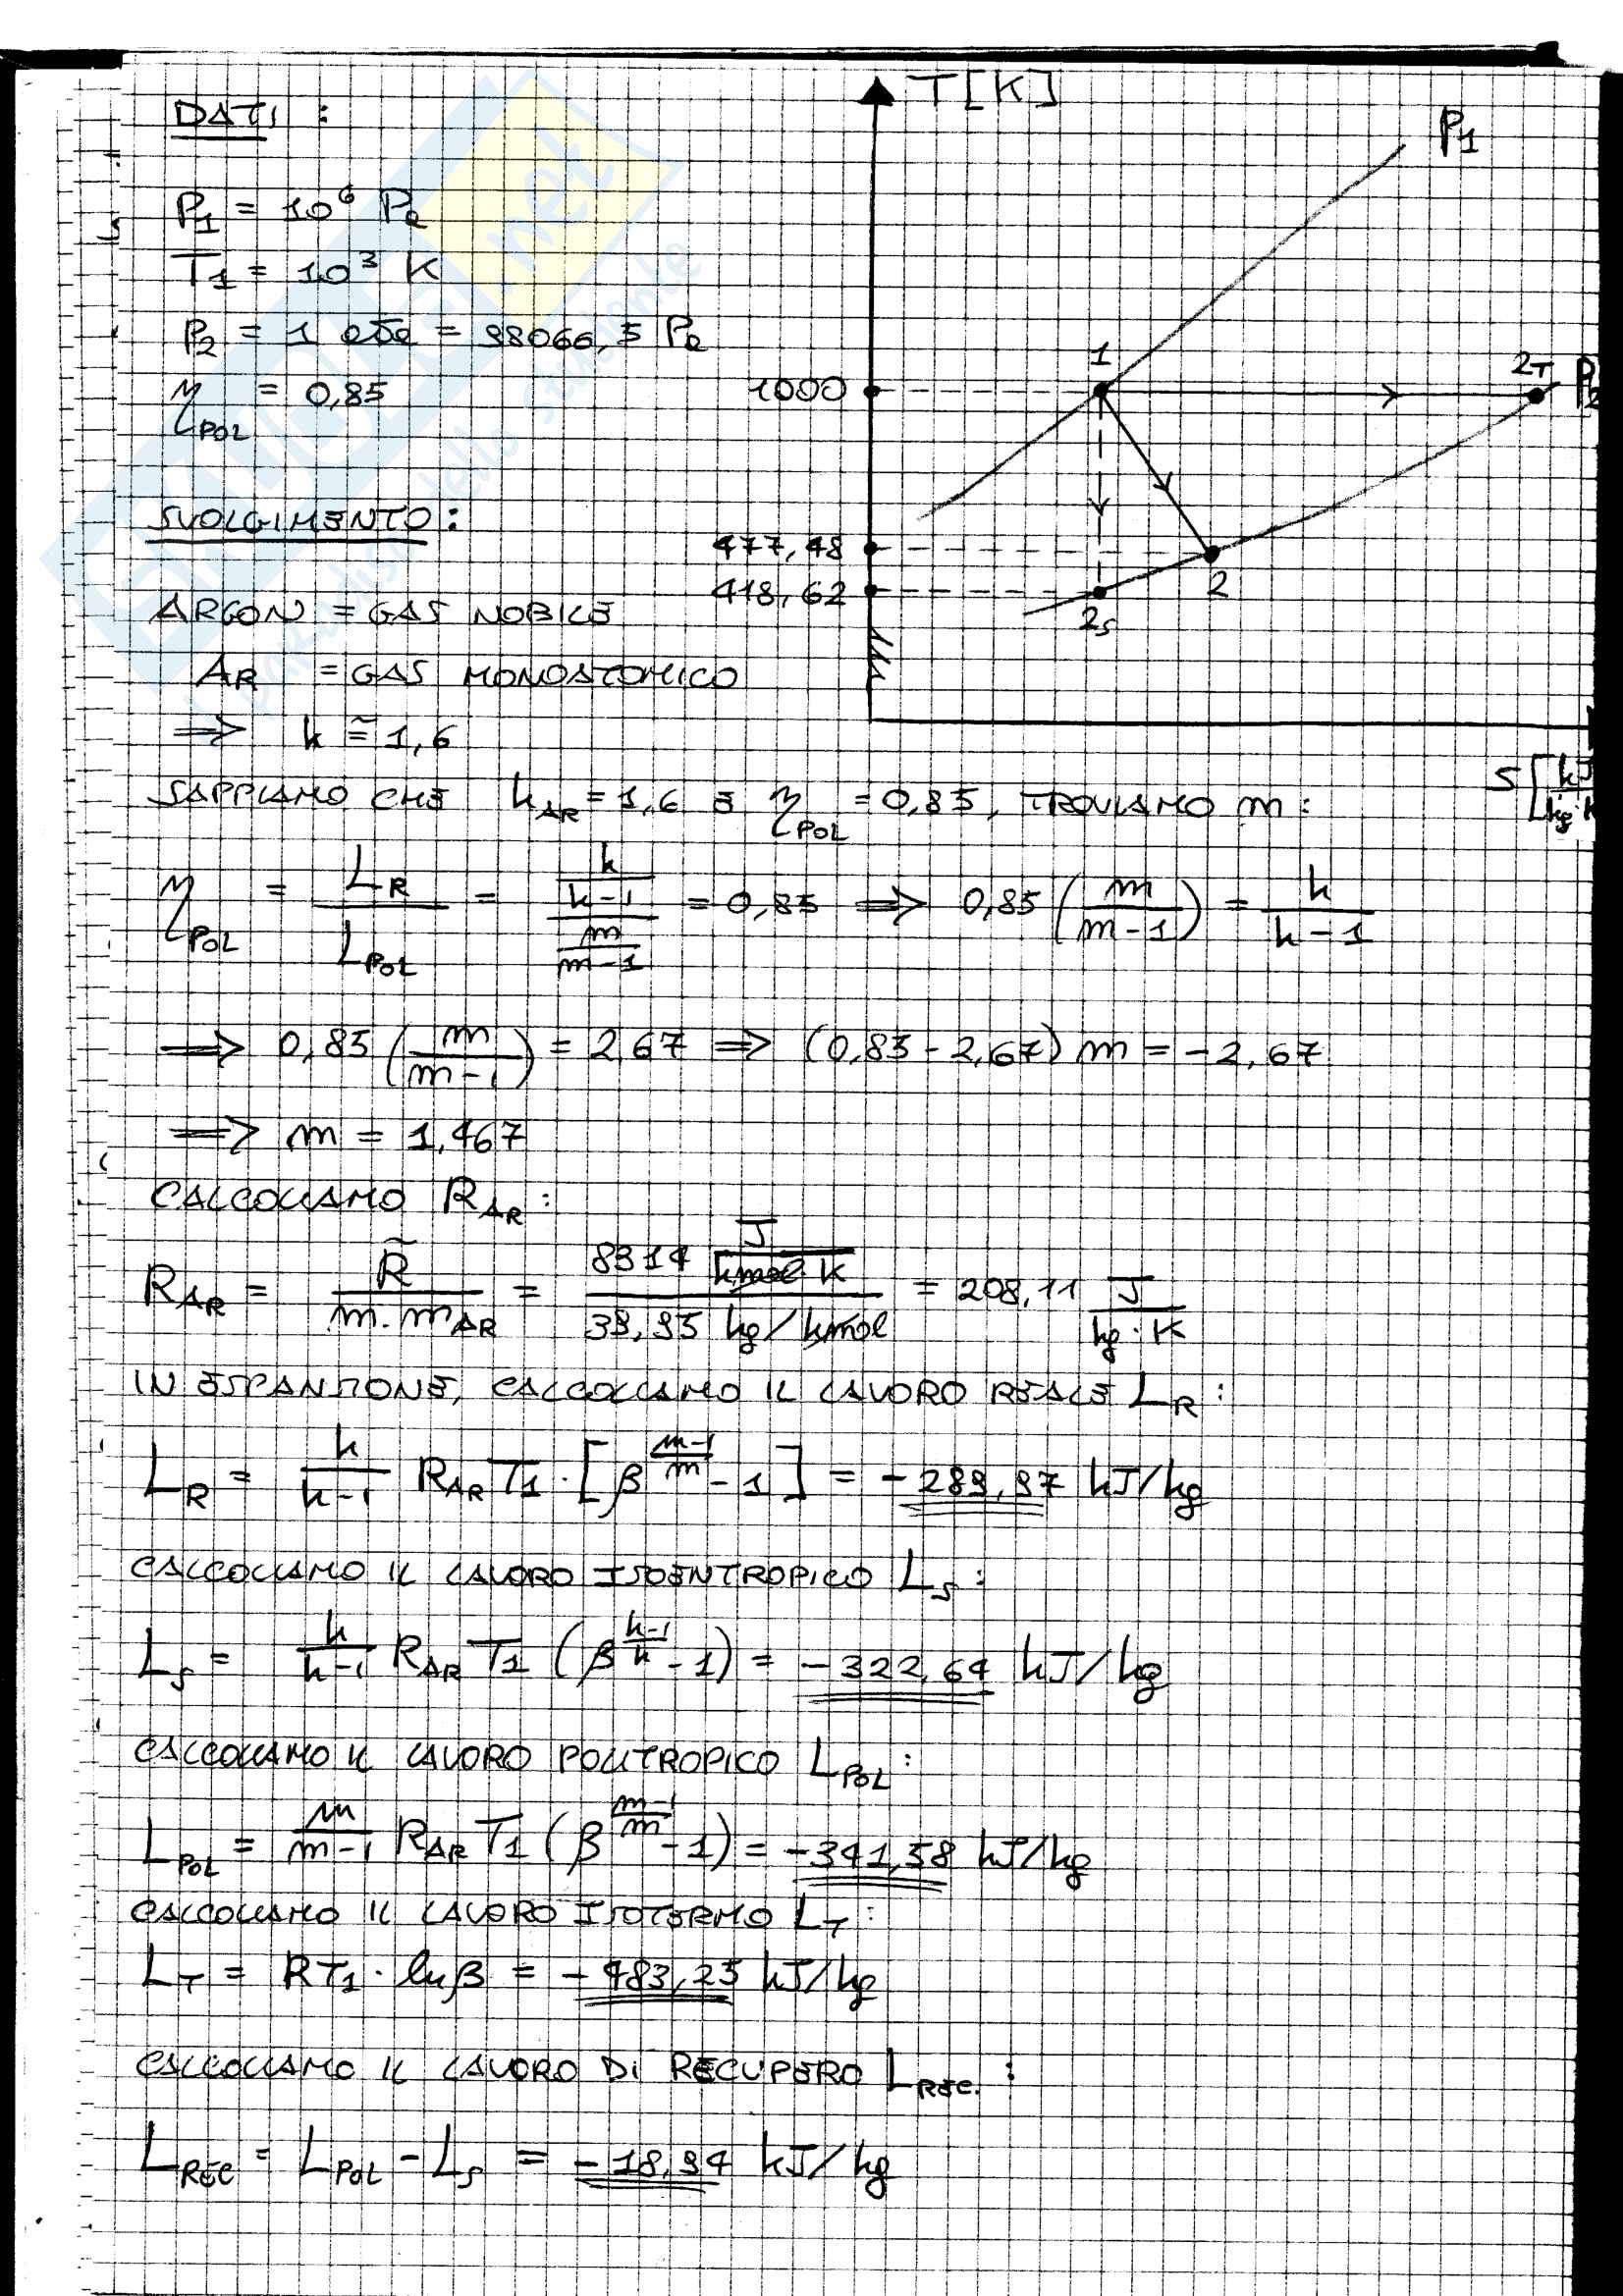 DATI :
P1 = 10^6 Pa
T1 = 10^3 K
P2 = 1 ata = 98066,5 Pa
η_POL = 0,85
T[K]
P1
1
2T
P2
1000
477,48
418,62
2
2s
S [kJ/kg·K]
SVOLGIMENTO :
ARGON = GAS NOBILE
AR = GAS MONOATOMICO
⇒ k ≅ 1,6
SAPPIAMO CHE k_AR = 1,6 E η_POL = 0,85, TROVIAMO m :
η_POL = L_R / L_POL = (k/(k-1)) / (m/(m-1)) = 0,85 ⇒ 0,85 (m/(m-1)) = k/(k-1)
⇒ 0,85 (m/(m-1)) = 2,67 ⇒ (0,85 - 2,67) m = -2,67
⇒ m = 1,467
CALCOLIAMO R_AR :
R_AR = R̃ / m.m_AR = 8314 J/kmol·K / 39,95 kg/kmol = 208,11 J/kg·K
IN ESPANSIONE, CALCOLIAMO IL LAVORO REALE L_R :
L_R = k/(k-1) R_AR T1 · [β^((m-1)/m) - 1] = - 289,97 kJ/kg
CALCOLIAMO IL LAVORO ISOENTROPICO L_S :
L_S = k/(k-1) R_AR T1 (β^((k-1)/k) - 1) = - 322,64 kJ/kg
CALCOLIAMO IL LAVORO POLITROPICO L_POL :
L_POL = m/(m-1) R_AR T1 (β^((m-1)/m) - 1) = - 341,58 kJ/kg
CALCOLIAMO IL LAVORO ISOTERMO L_T :
L_T = RT1 · ln β = - 483,25 kJ/kg
CALCOLIAMO IL LAVORO DI RECUPERO L_REC. :
L_REC = L_POL - L_S = - 18,94 kJ/kg